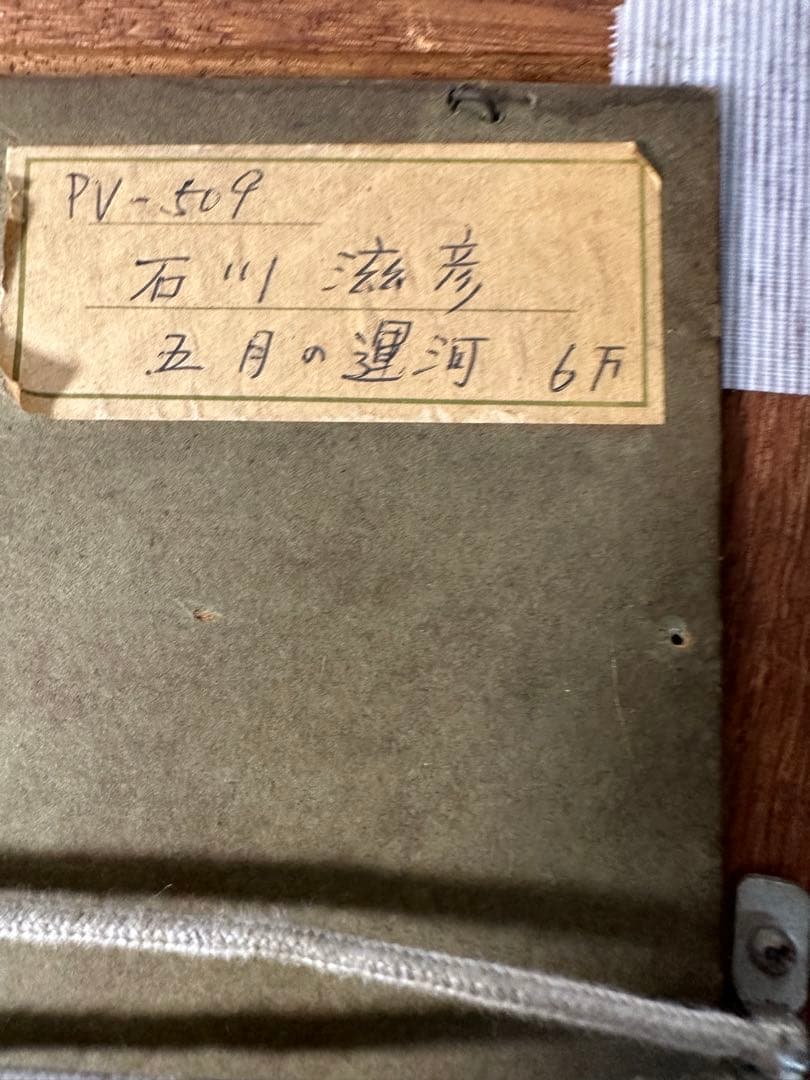 PV-509
石川 滋彦
五月の運河 6万